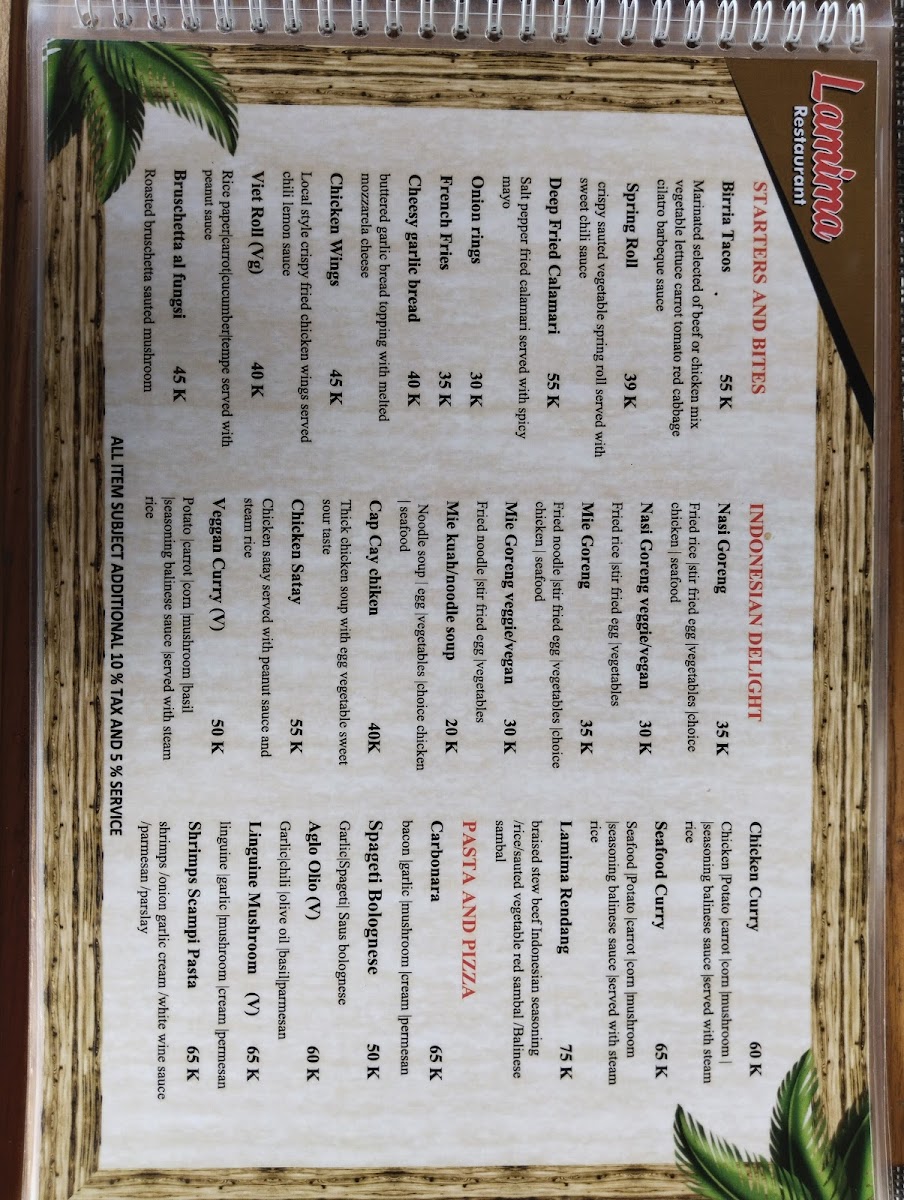 Lamima
Restaurant
STARTERS AND BITES
Birria Tacos 55 K
Marinated selected of beef or chicken mix
vegetable lettuce carrot tomato red cabbage
cilatro barbeque sauce
Spring Roll 39 K
crispy sauted vegetable spring roll served with
sweet chili sauce
Deep Fried Calamari 55 K
Salt pepper fried calamari served with spicy
mayo
Onion rings 30 K
French Fries 35 K
Cheesy garlic bread 40 K
buttered garlic bread topping with melted
mozzarela cheese
Chicken Wings 45 K
Local style crispy fried chicken wings served
chili lemon sauce
Viet Roll (Vg) 40 K
Rice paper|carrot|cucumber|tempe served with
peanut sauce
Bruschetta al fungsi 45 K
Roasted bruschetta sauted mushroom
INDONESIAN DELIGHT
Nasi Goreng 35 K
Fried rice |stir fried egg |vegetables |choice
chicken | seafood
Nasi Goreng veggie/vegan 30 K
Fried rice |stir fried egg |vegetables
Mie Goreng 35 K
Fried noodle |stir fried egg |vegetables |choice
chicken | seafood
Mie Goreng veggie/vegan 30 K
Fried noodle |stir fried egg |vegetables
Mie kuah/noodle soup 20 K
Noodle soup | egg |vegetables |choice chicken
| seafood
Cap Cay chiken 40K
Thick chicken soup with egg vegetable sweet
sour taste
Chicken Satay 55 K
Chicken satay served with peanut sauce and
steam rice
Veggan Curry (V) 50 K
Potato |carrot |corn |mushroom |basil
|seasoning balinese sauce |served with steam
rice
Chicken Curry 60 K
Chicken |Potato |carrot |corn |mushroom |
|seasoning balinese sauce |served with steam
rice
Seafood Curry 65 K
Seafood |Potato |carrot |corn |mushroom
|seasoning balinese sauce |served with steam
rice
Lamima Rendang 75 K
braised stew beef Indonesian seasoning
/rice/sauted vegetable red sambal /Balinese
sambal
PASTA AND PIZZA
Carbonara 65 K
bacon |garlic |mushroom |cream |permesan
Spageti Bolognese 50 K
Garlic|Spageti| Saus bolognese
Aglo Olio (V) 60 K
Garlic|chili |olive oil |basil|parmesan
Linguine Mushroom (V) 65 K
linguine |garlic |mushroom |cream |permesan
Shrimps Scampi Pasta 65 K
shrimps /onion garlic cream /white wine sauce
/parmesan /parslay
ALL ITEM SUBJECT ADDITIONAL 10 % TAX AND 5 % SERVICE